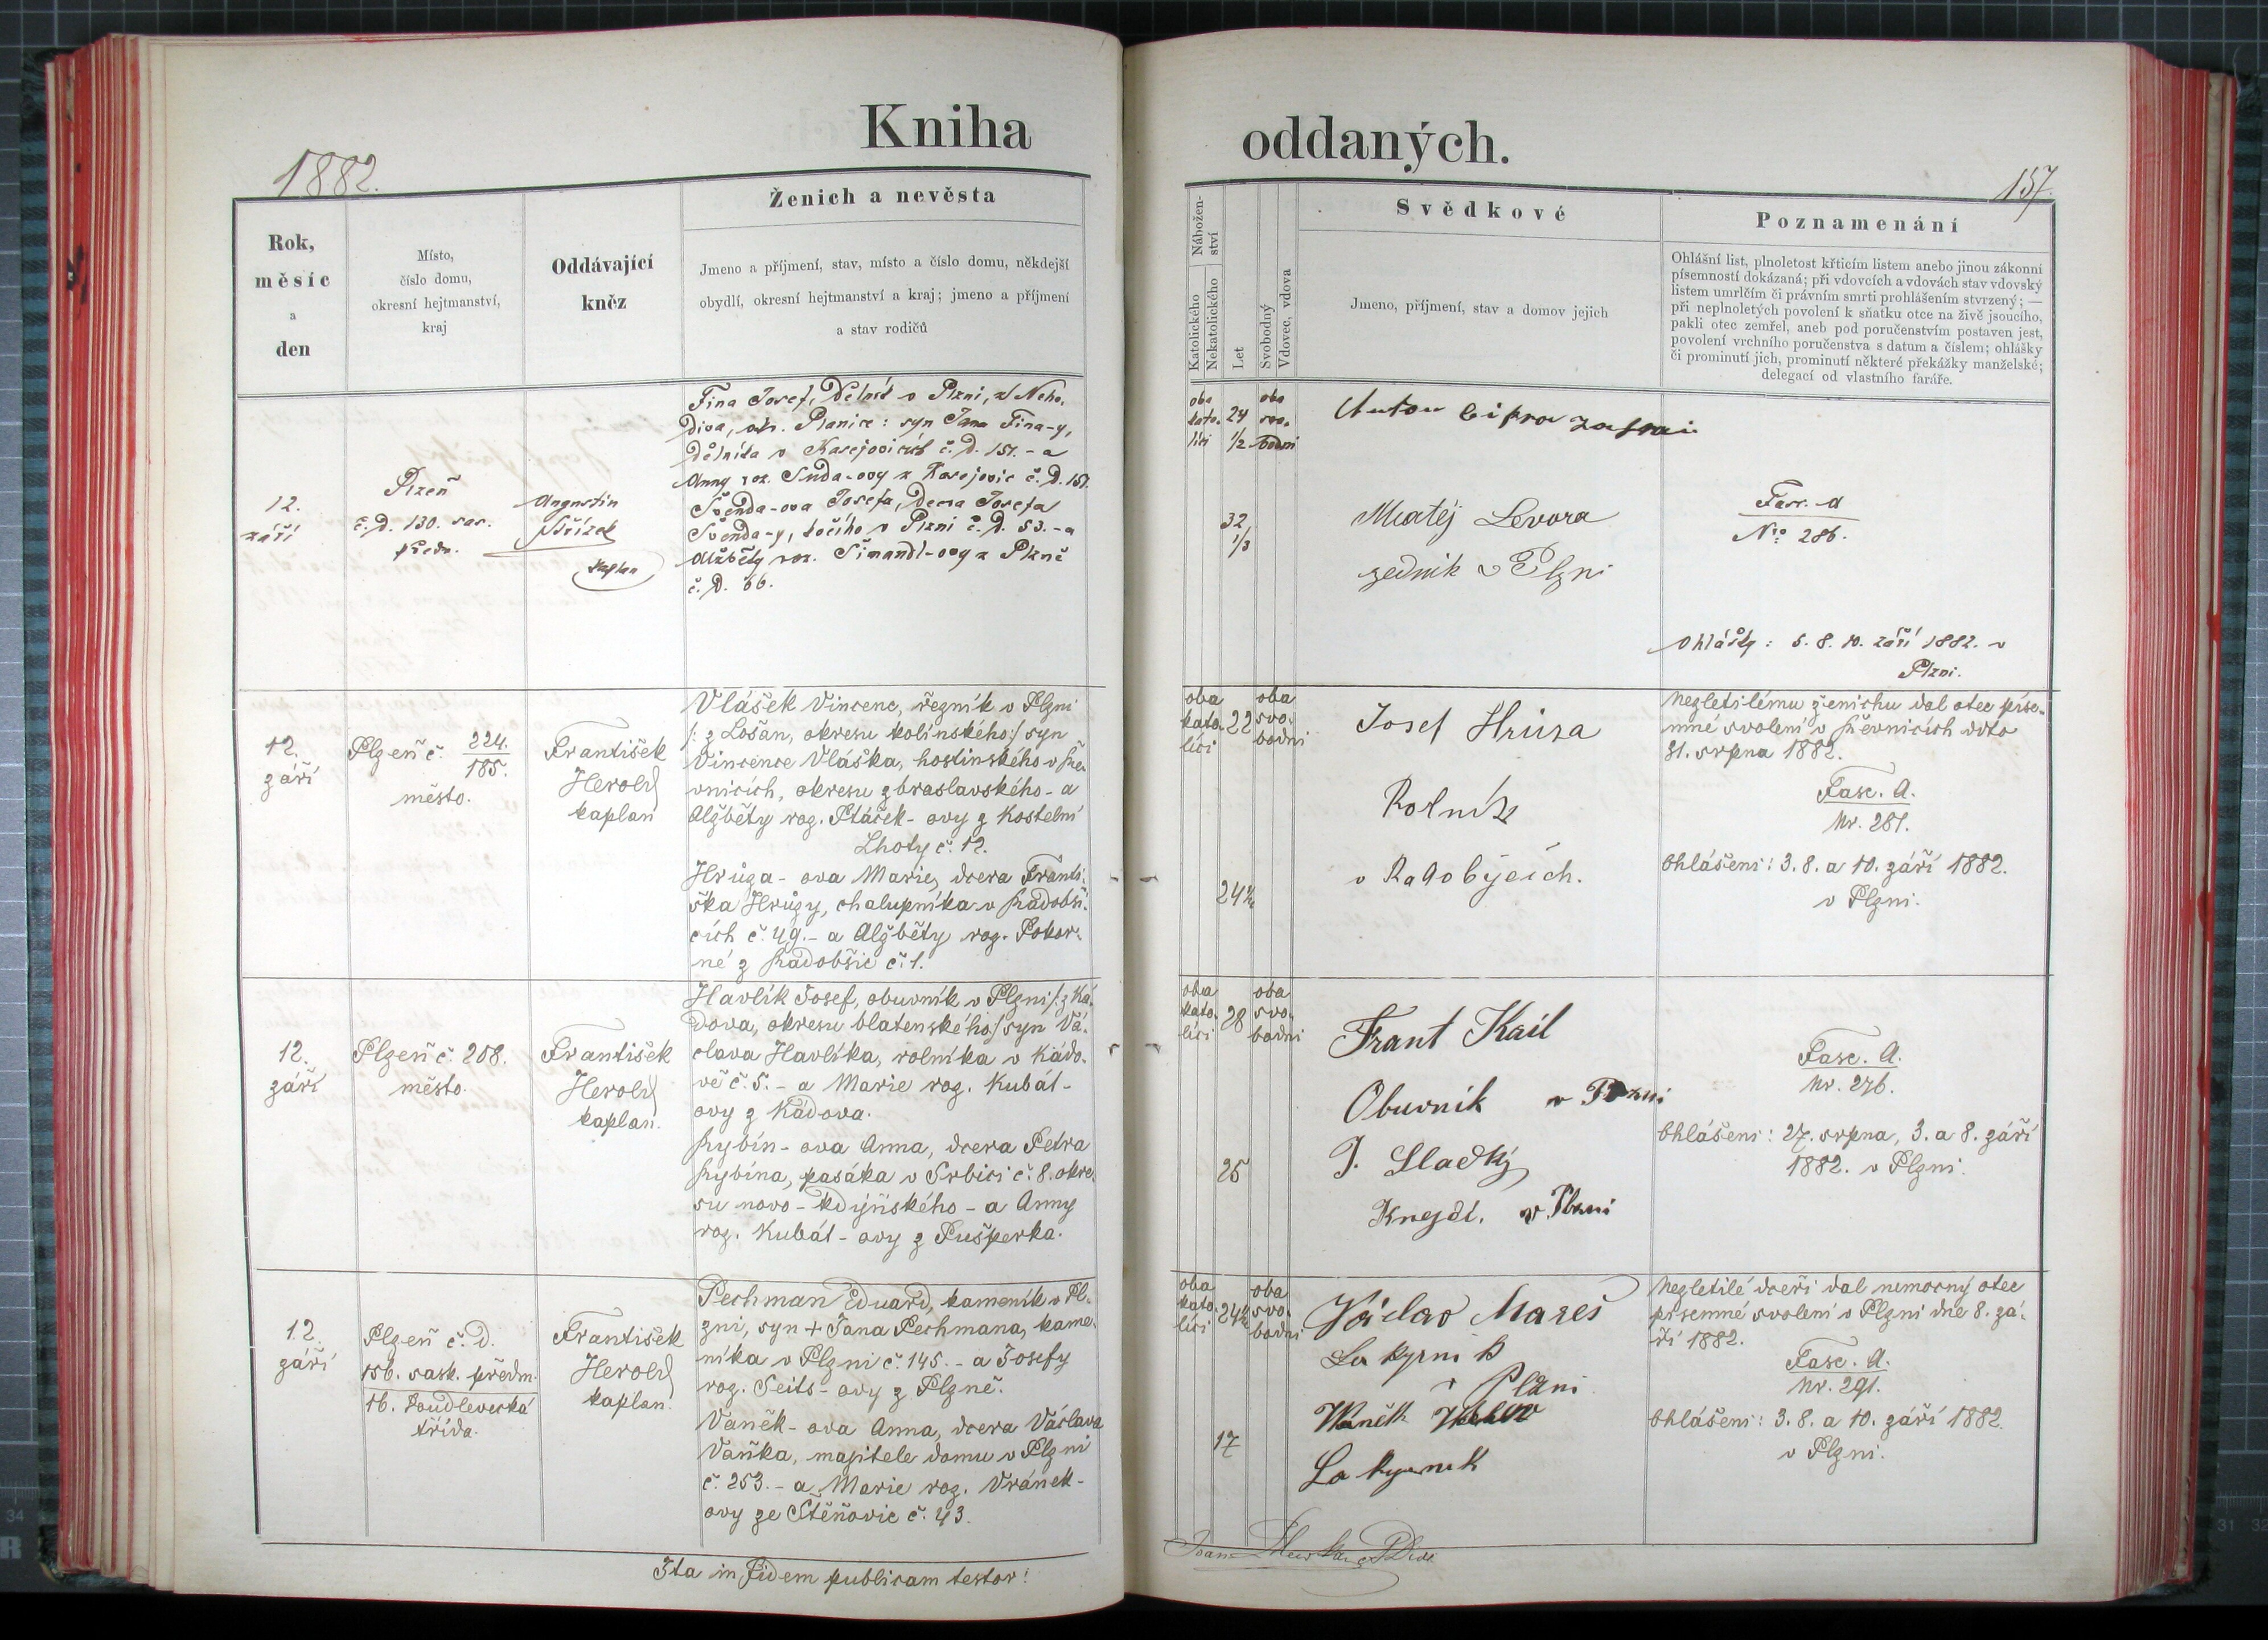 Kniha
oddaných.
1882.
157.
Rok,
měsíc
a
den
Místo,
číslo domu,
okresní hejtmanství,
kraj
Oddávající
kněz
Ženich a nevěsta
Jmeno a příjmení, stav, místo a číslo domu, někdejší
obydlí, okresní hejtmanství a kraj; jmeno a příjmení
a stav rodičů
Nábožen-
ství
Katolického
Nekatolického
Let
Svobodný
Vdovec, vdova
Svědkové
Jmeno, příjmení, stav a domov jejich
Poznamenání
Ohlášní list, plnoletost křticím listem anebo jinou zákonní
písemností dokázaná; při vdovcích a vdovách stav vdovský
listem umrlčím či právním smrti prohlášením stvrzený; —
při neplnoletých povolení k sňatku otce na živě jsoucího,
pakli otec zemřel, aneb pod poručenstvím postaven jest,
povolení vrchního poručenstva s datum a číslem; ohlášky
či prominutí jich, prominutí některé překážky manželské;
delegací od vlastního faráře.
12.
září
Plzeň
č. d. 130. sas.
předm.
Augustin
Střízek
kaplan
Fina Josef, dělník v Plzni, z Neho-
diva, okr. Planice: syn Jana Fina-y,
dělníka v Kasejovicích č. d. 151. - a
Anny roz. Suda-ovy z Kasejovic č. d. 151.
Švenda-ova Josefa, dcera Josefa
Švenda-y, kočího v Plzni č. d. 53. - a
Alžběty roz. Šimandl-ovy z Plzně
č. d. 66.
oba
kato-
líci
24
1/2
oba
svo-
bodni
32
1/3
Anton
Matěj Levora
zednik v Plzni
Fasc. A
Nro 286.
Ohlášky: 3. 8. 10. září 1882. v
Plzni.
12.
září
Plzeň č. 224.
185.
město.
František
Herold
kaplan
Vlášek Vincenc, řezník v Plzni
/: z Lošan, okresu kolínského :/ syn
Vincence Vláška, hostinského v Ře-
vnicích, okresu zbraslavského - a
Alžběty roz. Ptáček-ovy z Kostelní
Lhoty č. 12.
Hrůza-ova Marie, dcera Franti-
ška Hrůzy, chalupníka v Radobči-
cích č. 49. - a Alžběty roz. Pokor-
né z Radobšic č. 1.
oba
kato-
líci
22
oba
svo-
bodni
24 1/2
Josef Hrůza
Rolník
v Radobyčcích.
Nezletilému ženichu dal otec píse-
mné svolení v Řevnicích ddto
31. srpna 1882.
Fasc. A.
Nr. 281.
Ohlášeni: 3. 8. a 10. září 1882.
v Plzni.
12.
září
Plzeň č. 208.
město.
František
Herold
kaplan.
Havlík Josef, obuvník v Plzni /: z Ká-
dova, okresu blatenského :/ syn Vá-
clava Havlíka, rolníka v Kádo-
vě č. 5. - a Marie roz. Kubát-
ovy z Kádova.
Rybín-ova Anna, dcera Petra
Rybína, pasáka v Srbici č. 8. okre-
su novo-kdyňského - a Anny
roz. Kubát-ovy z Pušperka.
oba
kato-
líci
28
oba
svo-
bodni
25
Frant Kail
Obuvník v Plzni
J. Sladký
Knejdl. v Plzni
Fasc. A.
Nr. 276.
Ohlášeni: 27. srpna, 3. a 8. září
1882. v Plzni.
12.
září
Plzeň č. d.
156. sask. předm.
16. Koudlevecká
třída.
František
Herold
kaplan.
Pechman Eduard, kameník v Pl-
zni, syn + Jana Pechmana, kame-
níka v Plzni č. 145. - a Josefy
roz. Seits-ovy z Plzně.
Vaněk-ova Anna, dcera Václava
Vaňka, majitele domu v Plzni
č. 253. - a Marie roz. Vránek-
ovy ze Štěňovic č. 43.
oba
kato-
líci
24 1/2
oba
svo-
bodni
17
Václav Mareš
Lakyrnik
v Plzni
Waněk
Lakyrnik
Nezletilé dceři dal nemocný otec
písemné svolení v Plzni dne 8. zá-
ří 1882.
Fasc. A.
Nr. 291.
Ohlášeni: 3. 8. a 10. září 1882.
v Plzni.
Ita in fidem publicam testor: